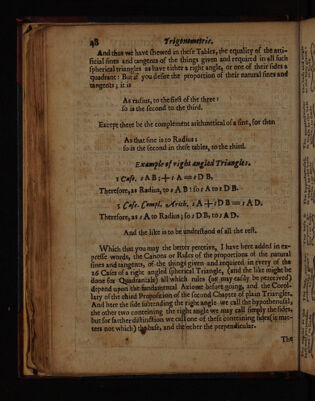 48 Trigonometrie.
And thus we have shewed in these Tables, the equality of the arti-
ficial sines and tangents of the things given and required in all such
spherical triangles as have either a right angle, or one of their sides a
quadrant: But if you desire the proportion of their natural sines and
tangents; it is
As radius, to the first of the three:
so is the second to the third.
Except there be the complement arithmetical of a sine, for then
As that sine is to Radius:
so is the second in these tables, to the third.
Example of right angled Triangles.
1 Case. s A B; + s A == s D B.
Therefore, as Radius, to s A B: so s A to s D B.
3 Case. Compl. Arith. s A + s D B == s A D.
Therefore, as s A to Radius; so s D B, to s A D.
And the like is to be understand of all the rest.
Which that you may the better perceive, I have here added in ex-
presse words, the Canons or Rules of the proportions of the natural
sines and tangents, of the things given and required in every of the
16 Cases of a right angled spherical Triangle, (and the like might be
done for Quadrantals) all which rules (as may easily be perceived)
depend upon the fundamental Axiome before going, and the Corol-
lary of the third Proposition of the second Chapter of plain Triangles.
And here the side subtending the right angle we call the hypothenusal,
the other two conteining the right angle we may call simply the sides,
but for farther distinction we call one of these conteining sides (it mat-
ters not which) the base, and the other the perpendicular.
The